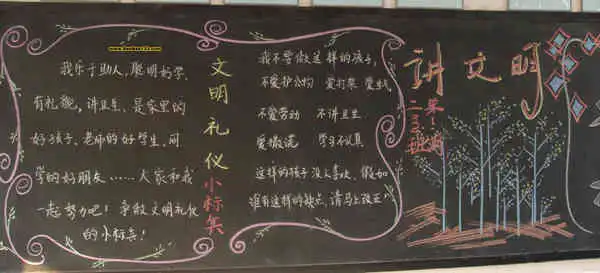 我乐于助人,聪明好学,
有礼貌,讲卫生、是家里的
好孩子、老师的好学生、同
学的好朋友……大家和我
一起努力吧!争做文明礼仪
的小标兵!
文明礼仪小标兵
我不要做这样的孩子,
不爱护公物 爱打架 爱生气
不爱劳动 不讲卫生
爱撒谎 学习不认真
这样的孩子没人喜欢,假如
谁有这样的缺点,请马上改正
讲文明